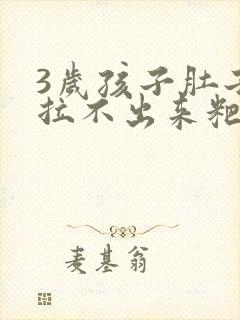 3歲孩子肚子
拉不出来粑
麦基翁